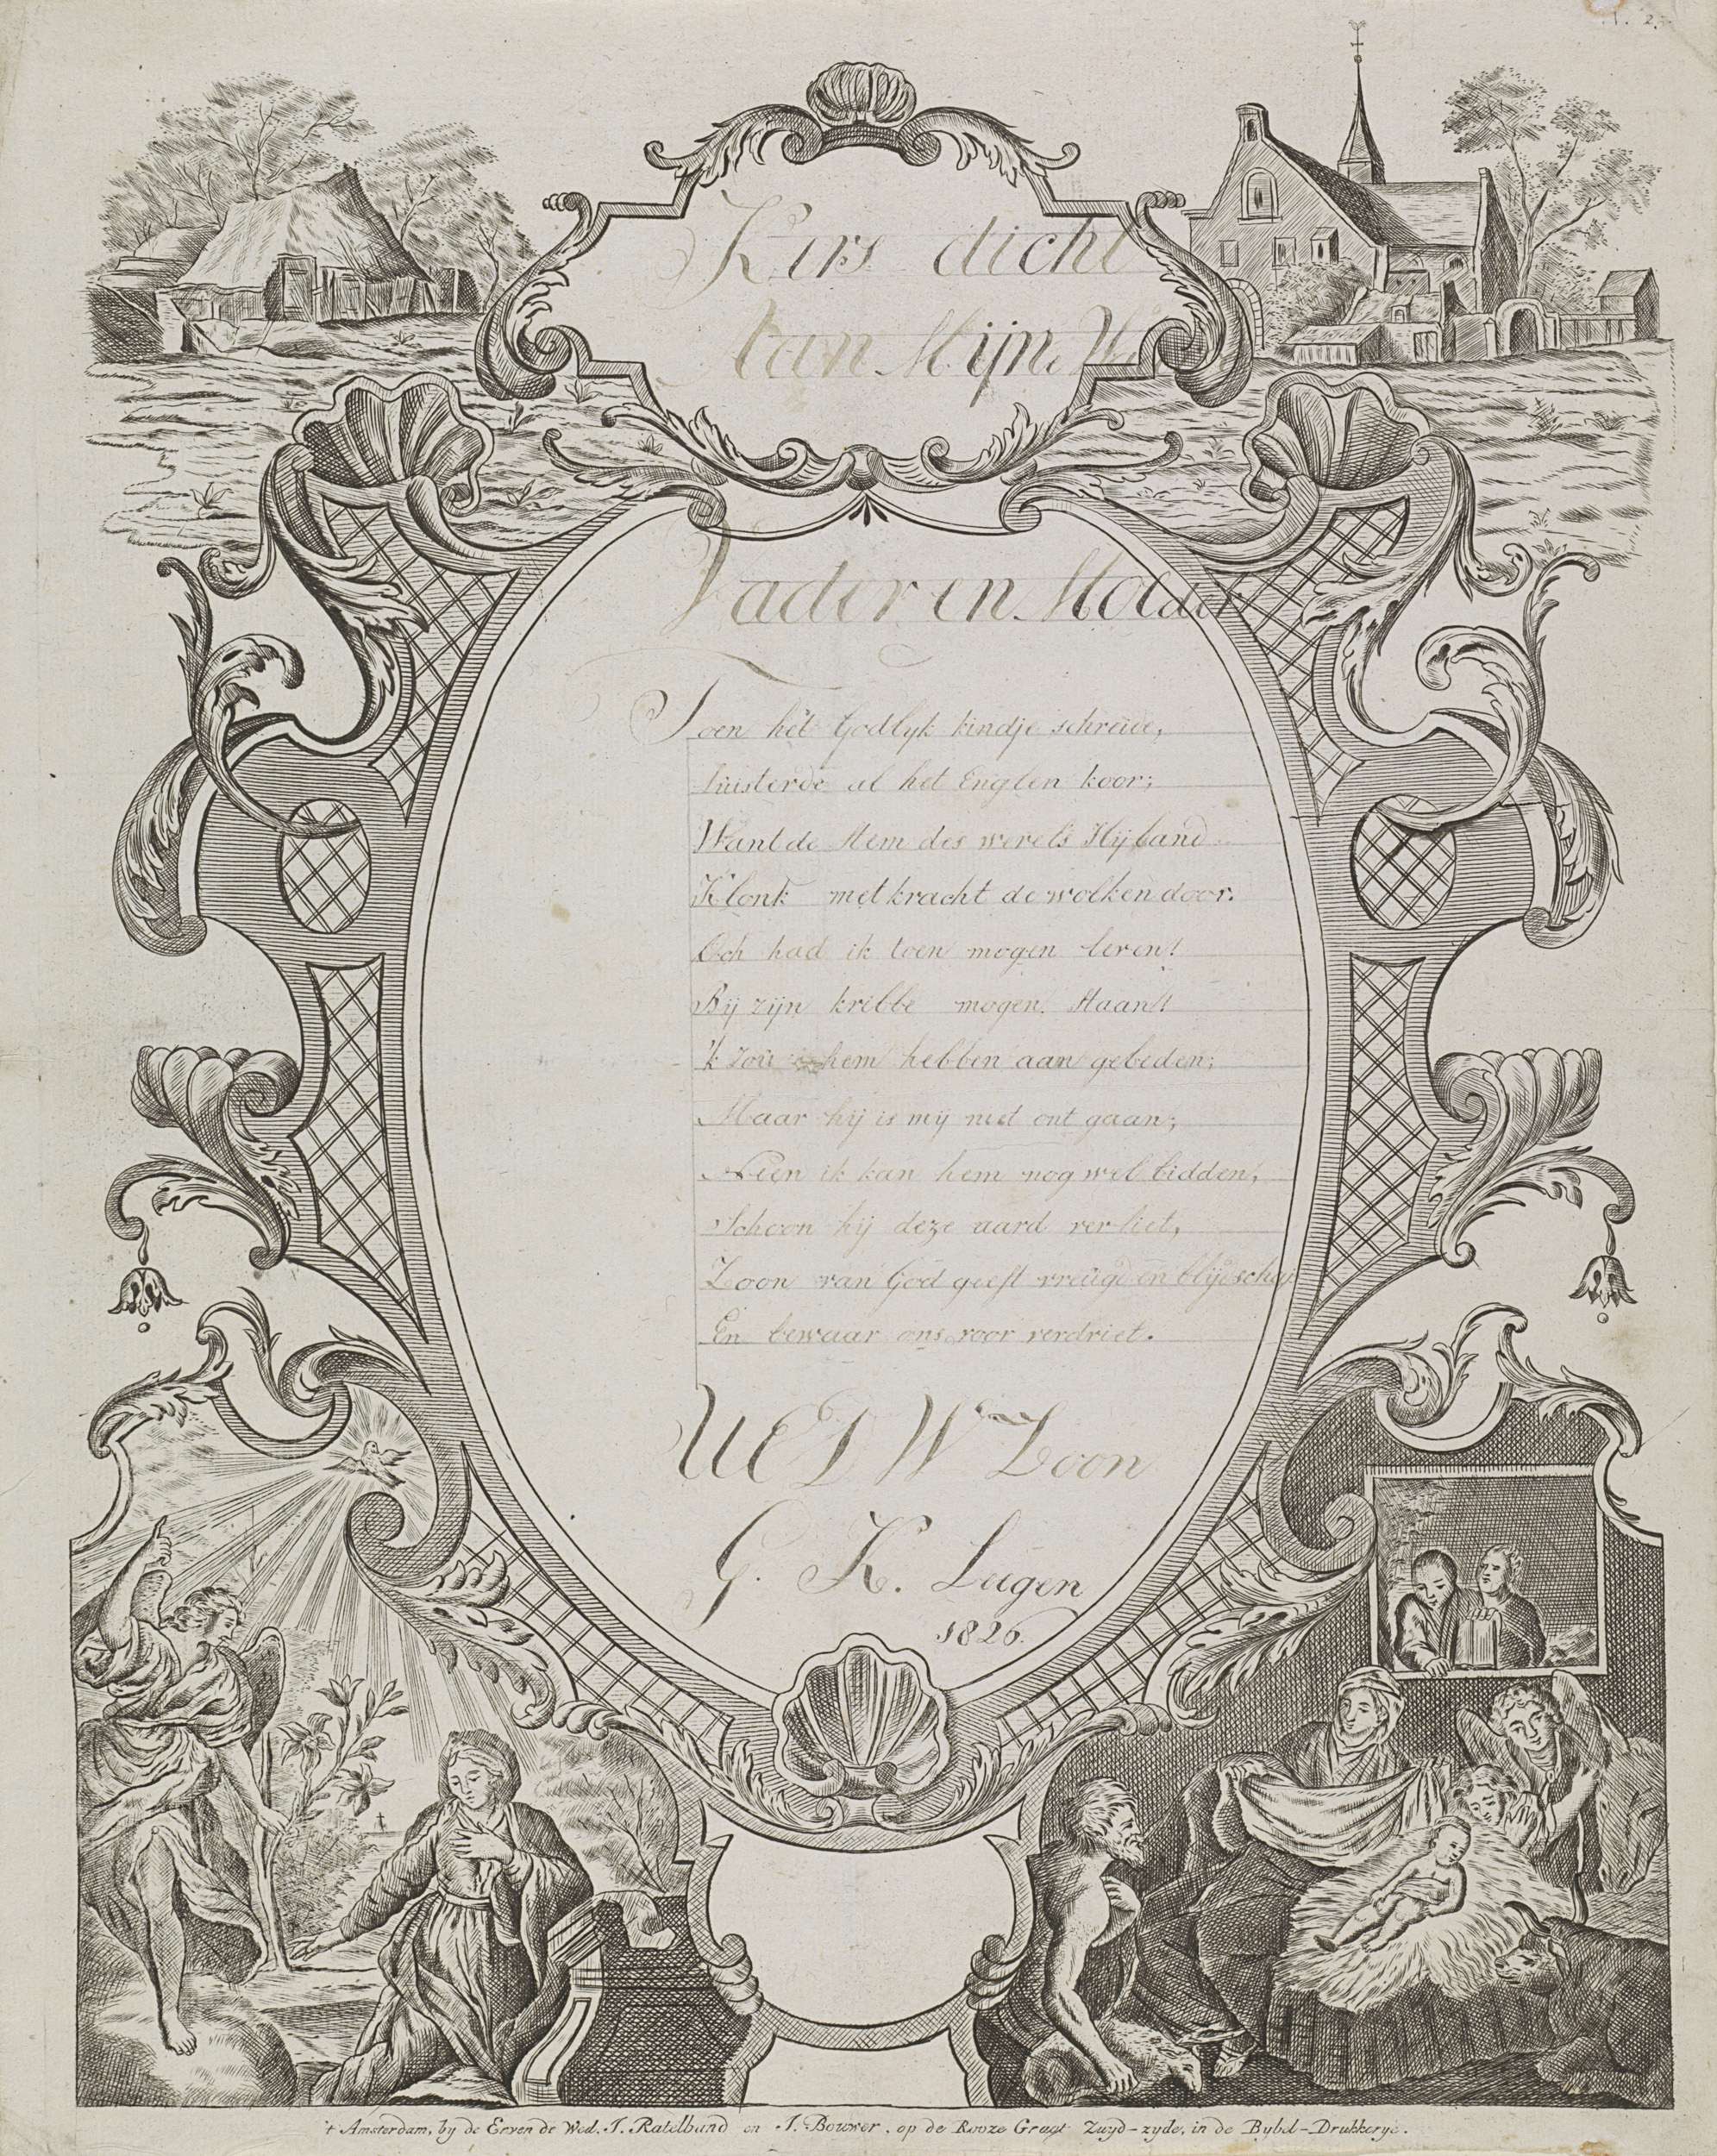 Kirs dicht
Aan Mijn W
Vader en Moeder
Toen het Godlyk kindje schreiee,
luisterde al het Englen koor;
Want de stem des werels Hijland
Klonk met kracht de wolken door.
Och had ik toen mogen leven!
Bij zijn kribbe mogen staan!
'k zou hem hebben aan gebeden;
Maar hij is mij niet ont gaan;
Neen ik kan hem nog wel bidden,
Schoon hij deze aard verliet,
Zoon van God geeft vreugd en blijdschap
En bewaar ons voor verdriet.
UED W Zoon
G. K. Lugen
1826
't Amsterdam, by de Erven de Wed. J. Ratelband en J. Bouwer, op de Rooze Gragt Zuyd-zyde, in de Bybel-Drukkerye.